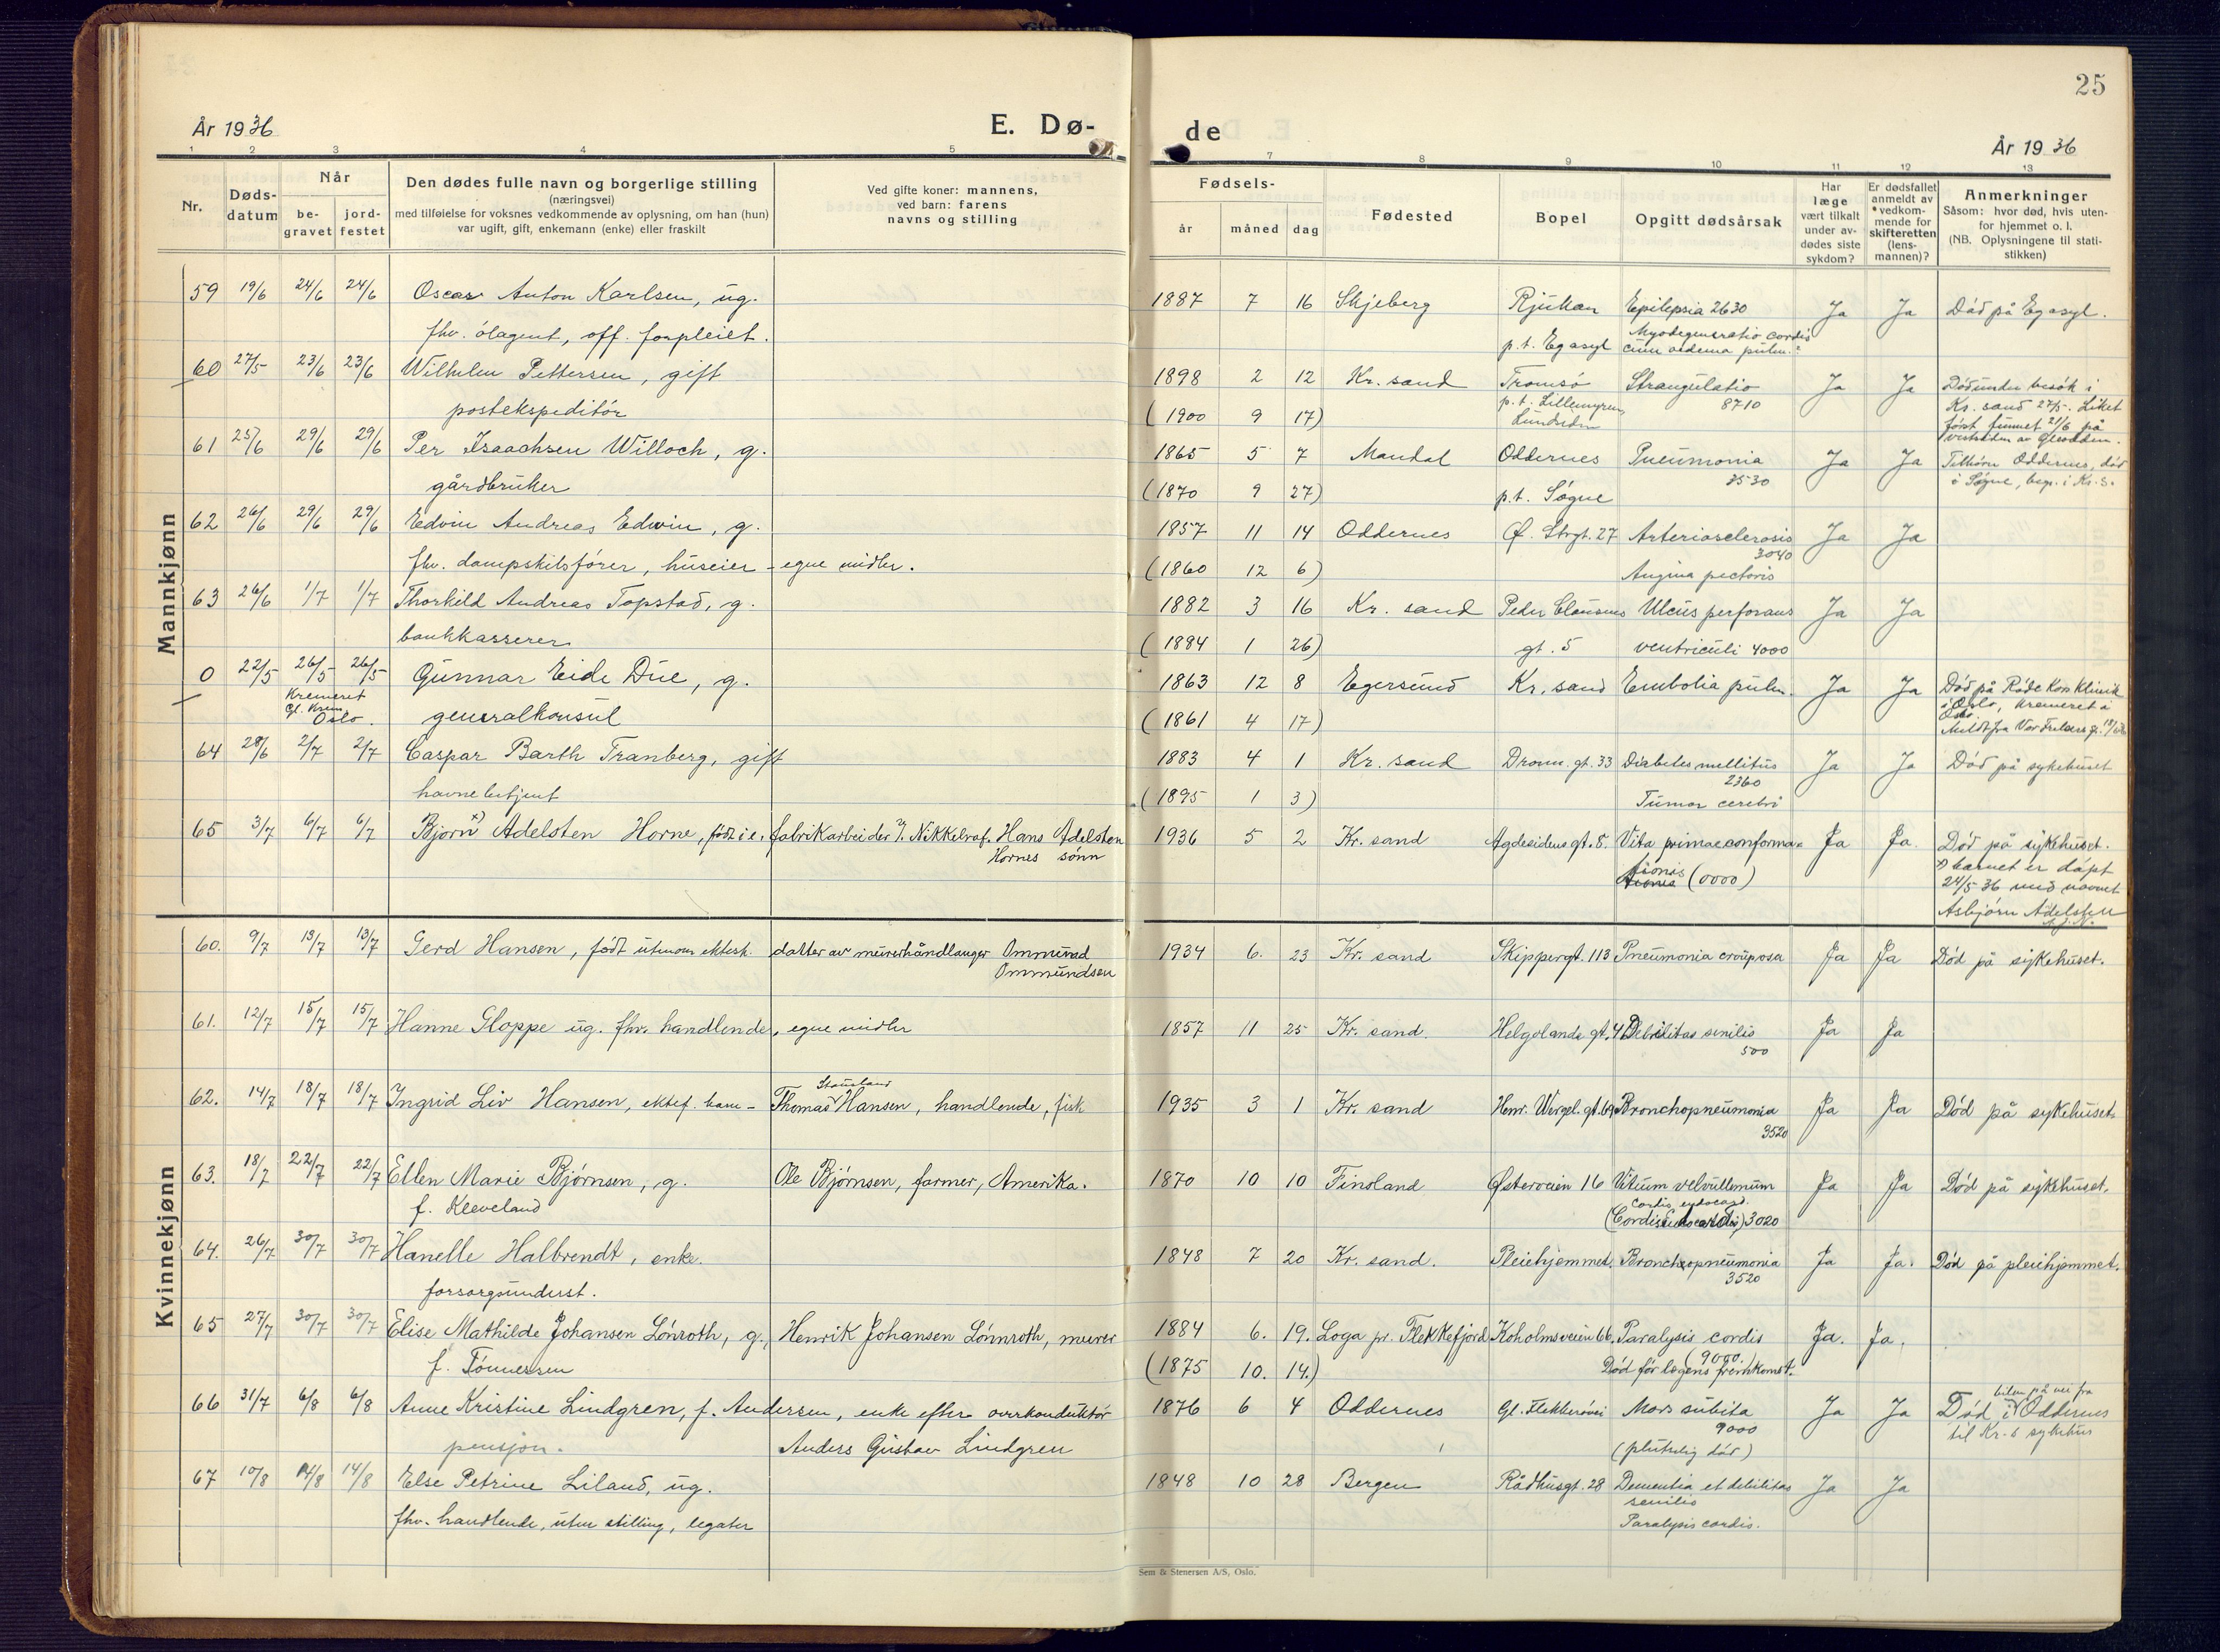 25
År 1936
E. Dø-
de
År 1936
1 2 3 4 5 7 8 9 10 11 12 13
Nr.
Døds-
datum
Når
be-
gravet
jord-
festet
Den dødes fulle navn og borgerlige stilling
(næringsvei)
med tilføielse for voksnes vedkommende av oplysning, om han (hun)
var ugift, gift, enkemann (enke) eller fraskilt
Ved gifte koner: mannens,
ved barn: farens
navns og stilling
Fødsels-
år måned dag
Fødested
Bopel
Opgitt dødsårsak
Har
læge
vært tilkalt
under av-
dødes siste
sykdom?
Er dødsfallet
anmeldt av
vedkom-
mende for
skifteretten
(lens-
mannen)?
Anmerkninger
Såsom: hvor død, hvis uten-
for hjemmet o. l.
(NB. Oplysningene til stati-
stikken)
Mannkjønn
59 19/6 24/6 24/6 Oscar Anton Karlsen, ug. 1887 7 16 Skjeberg Rjukan Epilepsia 2630 Ja Ja Død på Eg asyl.
fhv. ølagent, off. forpleiet. p.t. Eg asyl Myodegeneratio cordis
cum oedema pulm.
60 27/5 23/6 23/6 Wilhelm Pettersen, gift 1898 2 12 Kr. sand Tromsø Strangulatio 8710 Ja Ja Død under besøk i
postekspeditør (1900 9 17) p.t. Lillemyren, Kr. sand 27/5. Liket
Lundsiden først funnet 21/6 på
61 25/6 29/6 29/6 Per Isaachsen Willoch, g. 1865 5 7 Mandal Oddernes Pneumonia Ja Ja Tilhører Oddernes, død
gårdbruker (1870 9 27) p.t. Søgne 3530 i Søgne, begr. i Kr. s.
62 26/6 29/6 29/6 Edvin Andreas Edwin, g. 1857 11 14 Oddernes Ø. Strgt. 27 Arteriosclerosis 3040 Ja Ja
fhv. dampskibsfører, huseier - egne midler. (1860 12 6) Angina pectoris
63 26/6 1/7 1/7 Thorkild Andreas Topstad, g. 1882 3 16 Kr. sand Peder Clausens Ulcus perforans Ja Ja
bankkasserer (1884 1 26) gt. 5 ventriculi 4000
0 22/5 26/5 26/5 Gunnar Eide Due, g. 1863 12 8 Egersund Kr. sand Embolia pulm. Ja Ja Død på Røde Kors Klinik
Kremeret Gl. Krem. Oslo. generalkonsul (1861 4 17) i Oslo, kremeret i
Oslo.
64 28/6 2/7 2/7 Caspar Barth Tranberg, gift 1883 4 1 Kr. sand Dronn. gt. 33 Diabetes mellitus 2360 Ja Ja Død på sykehuset
havnebetjent (1895 1 3) Tumor cerebri
65 3/7 6/7 6/7 Bjørn x) Adelsten Horne, født i e. fabrikarbeider v/. Nikkelraf. Hans Adelsten 1936 5 2 Kr. sand Agdesidens gt. 8. Vita primae conforma- Ja Ja. Død på sykehuset.
Hornes sønn tionis (0000) x) barnet er døpt
24/5 36 med navnet
Asbjørn Adelsten
Kvinnekjønn
60. 9/7 13/7 13/7 Gerd Hansen, født utenom ektesk. datter av murerhåndlanger Ommund 1934 6. 23 Kr. sand Skippergt. 113 Pneumonia crouposa Ja Ja Død på sykehuset.
Ommundsen
61. 12/7 15/7 15/7 Hanne Gloppe ug. fhv. handlende, egne midler 1857 11 25 Kr. sand. Helgolands gt. 4 Debilitas senilis Ja Ja
500
62. 14/7 18/7 18/7 Ingrid Liv Hansen, ektef. barn - Thomas Stausland Hansen, handlende, fisk 1935 3 1 Kr. sand Henr. Wergel. gt. 69 Bronchopneumonia Ja Ja Død på sykehuset.
3520
63. 18/7 22/7 22/7 Ellen Marie Bjørnsen, g. Ole Bjørnsen, farmer, Amerika. 1870 10 10 Finsland Østerveien 16 Vitium Ja Ja Død på sykehuset.
f. Kleveland 3020
64. 26/7 30/7 30/7 Hanelle Halbrendt, enke. 1848 7 20 Kr. sand. Pleiehjemmet. Bronchopneumonia Ja Ja. Død på pleiehjemmet.
forsorgsunderst. 3520
65 27/7 30/7 30/7 Elise Mathilde Johansen Lønroth, g., Henrik Johansen Lønnroth, murer 1884 6. 19. Loga pr. Flekkefjord Koholmsveien 66. Paralysis cordis Ja. Ja.
f. Tønnessen (1875 10. 14.) (9000.)
Død før lægens fremkomst.
66 31/7 6/8 6/8 Anne Kristine Lindgren, f. Andersen, enke efter overkonduktør 1876 6 4 Oddernes Gl. Flekkerøvei Mors subita 9000 Ja Ja Død i bilen på vei fra Oddernes
pensjon. Anders Gustav Lindgren (plutselig død) til Kr. s sykehus
67 10/8 14/8 14/8 Else Petrine Liland, ug. 1848 10 28 Bergen Rådhusgt. 28 Dementia et debilitas Ja Ja
senilis
fhv. handlende, uten stilling, legater Paralysis cordis.
Sem & Stenersen A/S, Oslo.